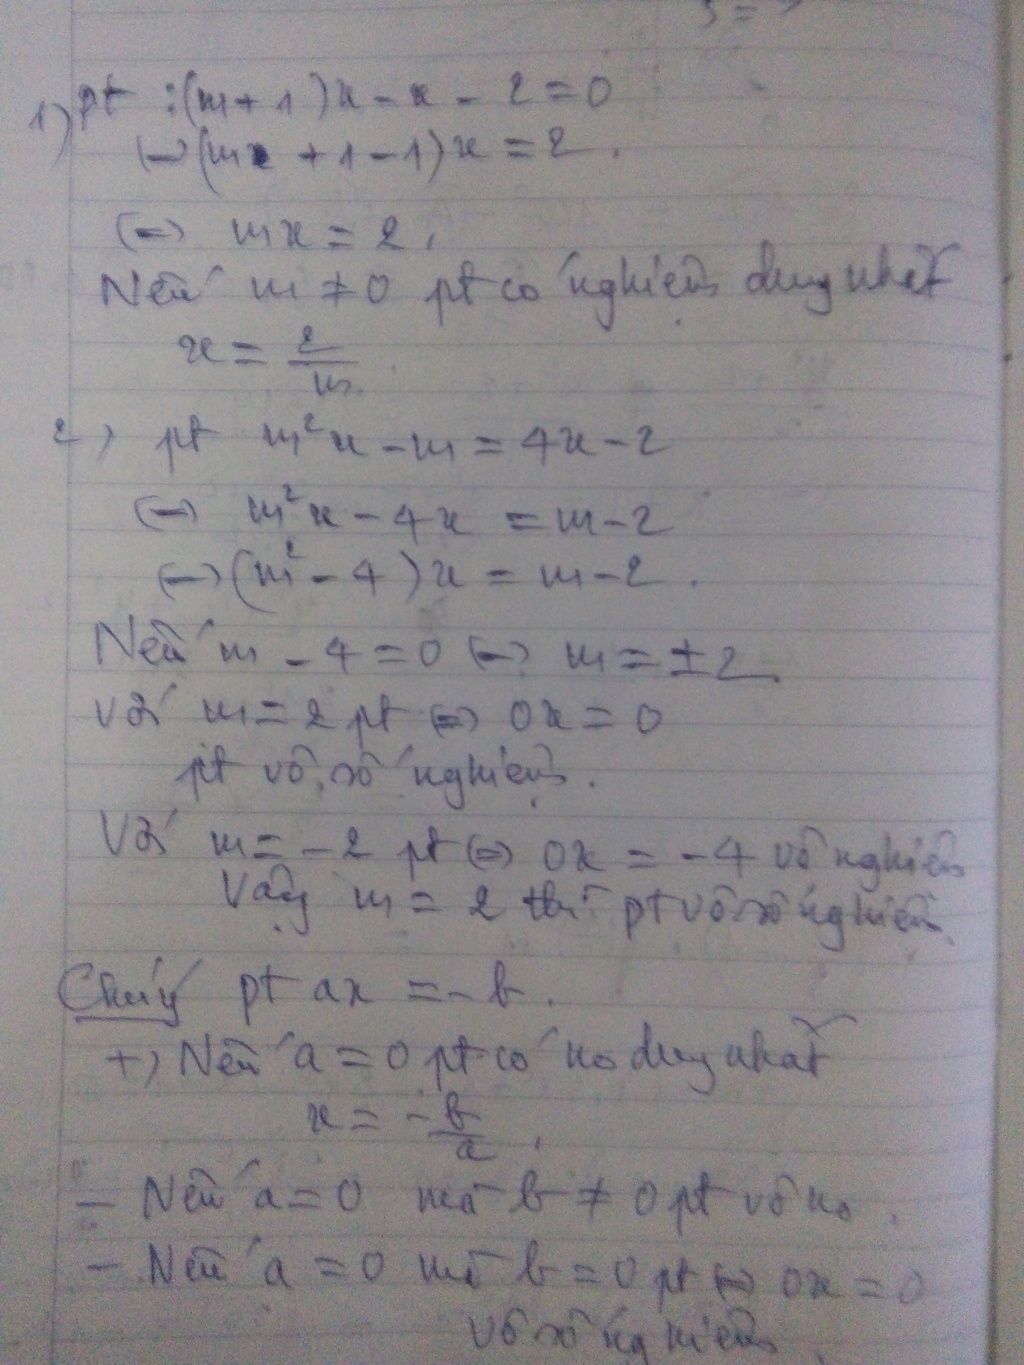 1) pt : (m+1)x - x - 2 = 0
(=) (m + 1 - 1)x = 2.
(=) mx = 2.
Nếu m ≠ 0 pt có nghiệm duy nhất
x = 2/m.
2) pt m²x - m = 4x - 2
(=) m²x - 4x = m - 2
(=) (m² - 4)x = m - 2.
Nếu m - 4 = 0 (=) m = ±2.
Với m = 2 pt (=) 0x = 0
pt vô số nghiệm.
Với m = -2 pt (=) 0x = -4 vô nghiệm
Vậy m = 2 thì pt vô số nghiệm.
Chú ý pt ax = -b.
+) Nếu a = 0 pt có no duy nhất
x = -b/a.
- Nếu a = 0 mà b ≠ 0 pt vô no.
- Nếu a = 0 mà b = 0 pt (=) 0x = 0
vô số nghiệm.